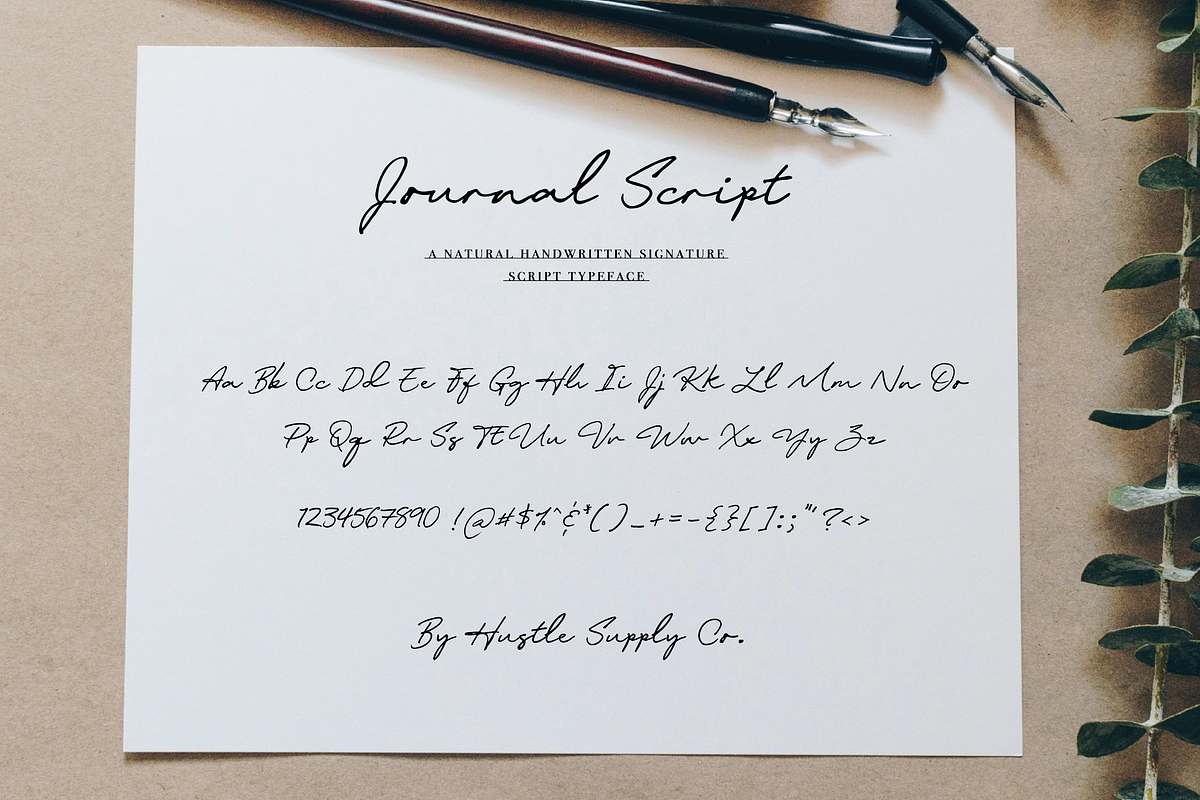 Journal Script
A NATURAL HANDWRITTEN SIGNATURE
SCRIPT TYPEFACE
Aa Bb Cc Dd Ee Ff Gg Hh Ii Jj Kk Ll Mm Nn Oo
Pp Qq Rr Ss Tt Uu Vv Ww Xx Yy Zz
1234567890 !@#$%^&*()_+=-{}[]:;"'?<>
By Hustle Supply Co.